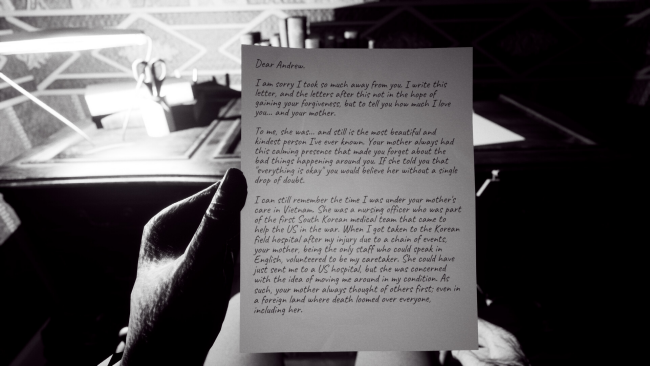 Dear Andrew,
I am sorry I took so much away from you. I write this
letter, and the letters after this not in the hope of
gaining your forgiveness, but to tell you how much I love
you... and your mother.
To me, she was... and still is the most beautiful and
kindest person I've ever known. Your mother always had
this calming presence that made you forget about the
bad things happening around you. If she told you that
"everything is okay" you would believe her without a single
drop of doubt.
I can still remember the time I was under your mother's
care in Vietnam. She was a nursing officer who was part
of the first South Korean medical team that came to
help the US in the war. When I got taken to the Korean
field hospital after my injury due to a chain of events,
your mother, being the only staff who could speak in
English, volunteered to be my caretaker. She could have
just sent me to a US hospital, but she was concerned
with the idea of moving me around in my condition. As
such, your mother always thought of others first; even in
a foreign land where death loomed over everyone,
including her.